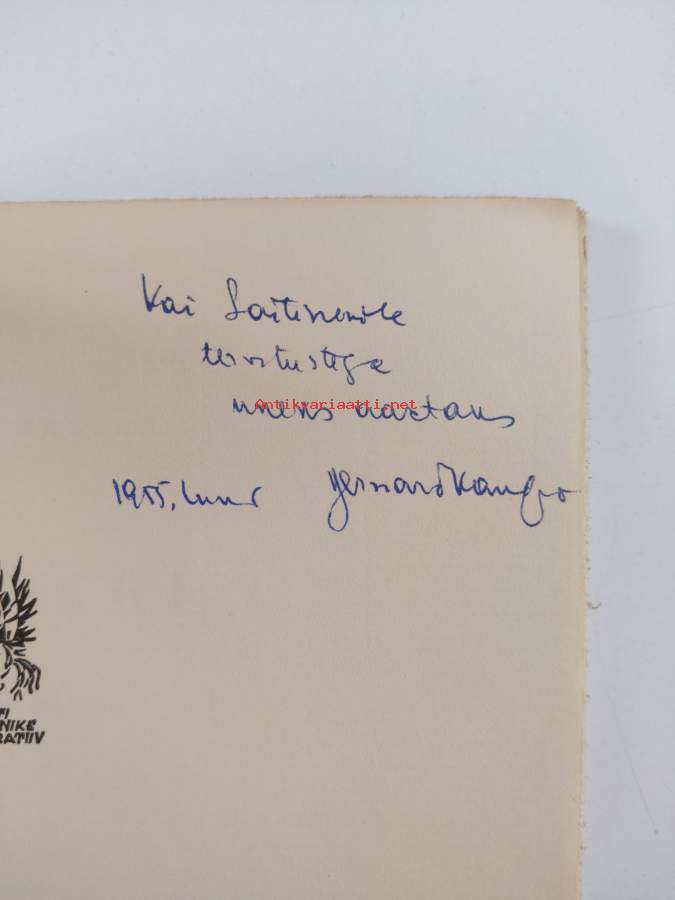 Kai Laitinenile
tervitustega
uueks aastaks
Antikvariaatti.net
1955, Lund Bernard Kangro
TI
NIKE
RATIIV